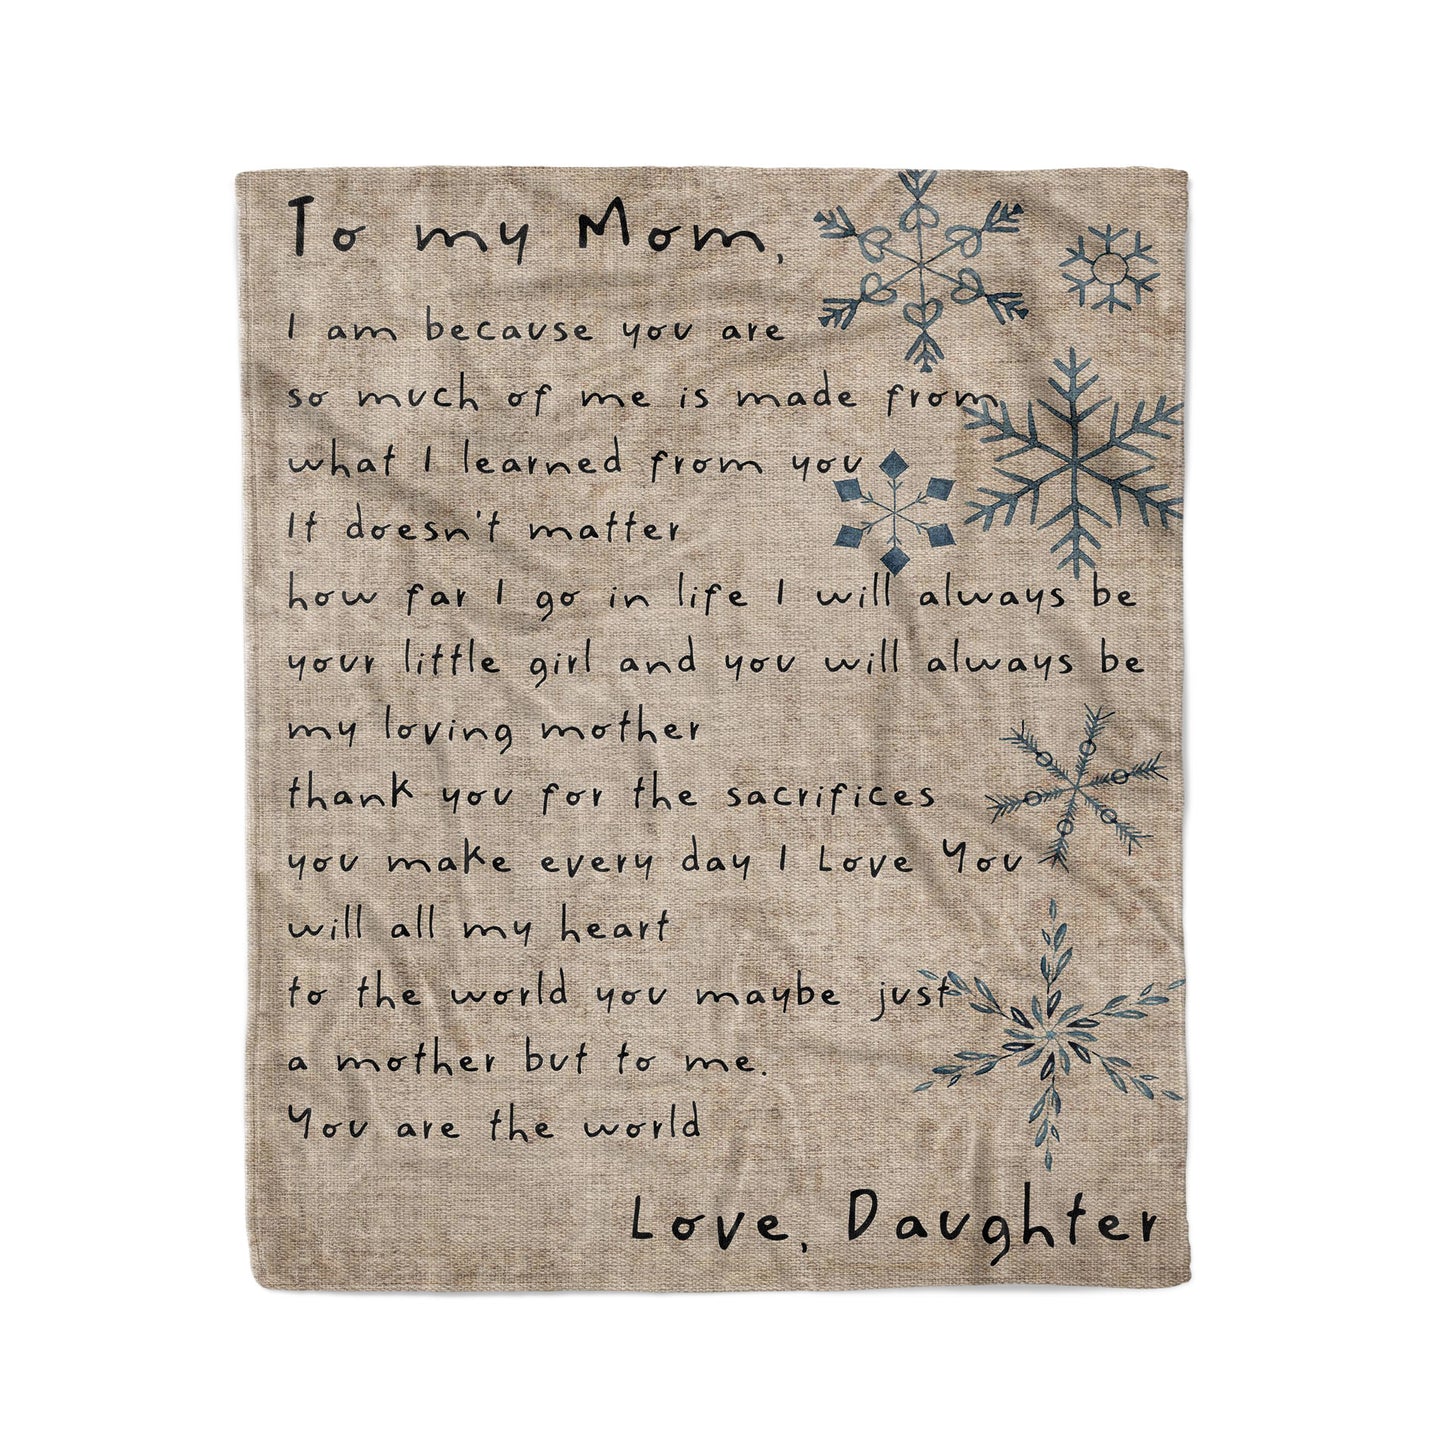 To my Mom,
I am because you are
so much of me is made from
what I learned from you
It doesn't matter
how far I go in life I will always be
your little girl and you will always be
my loving mother
thank you for the sacrifices
you make every day I Love You
will all my heart
to the world you maybe just
a mother but to me.
You are the world
Love, Daughter